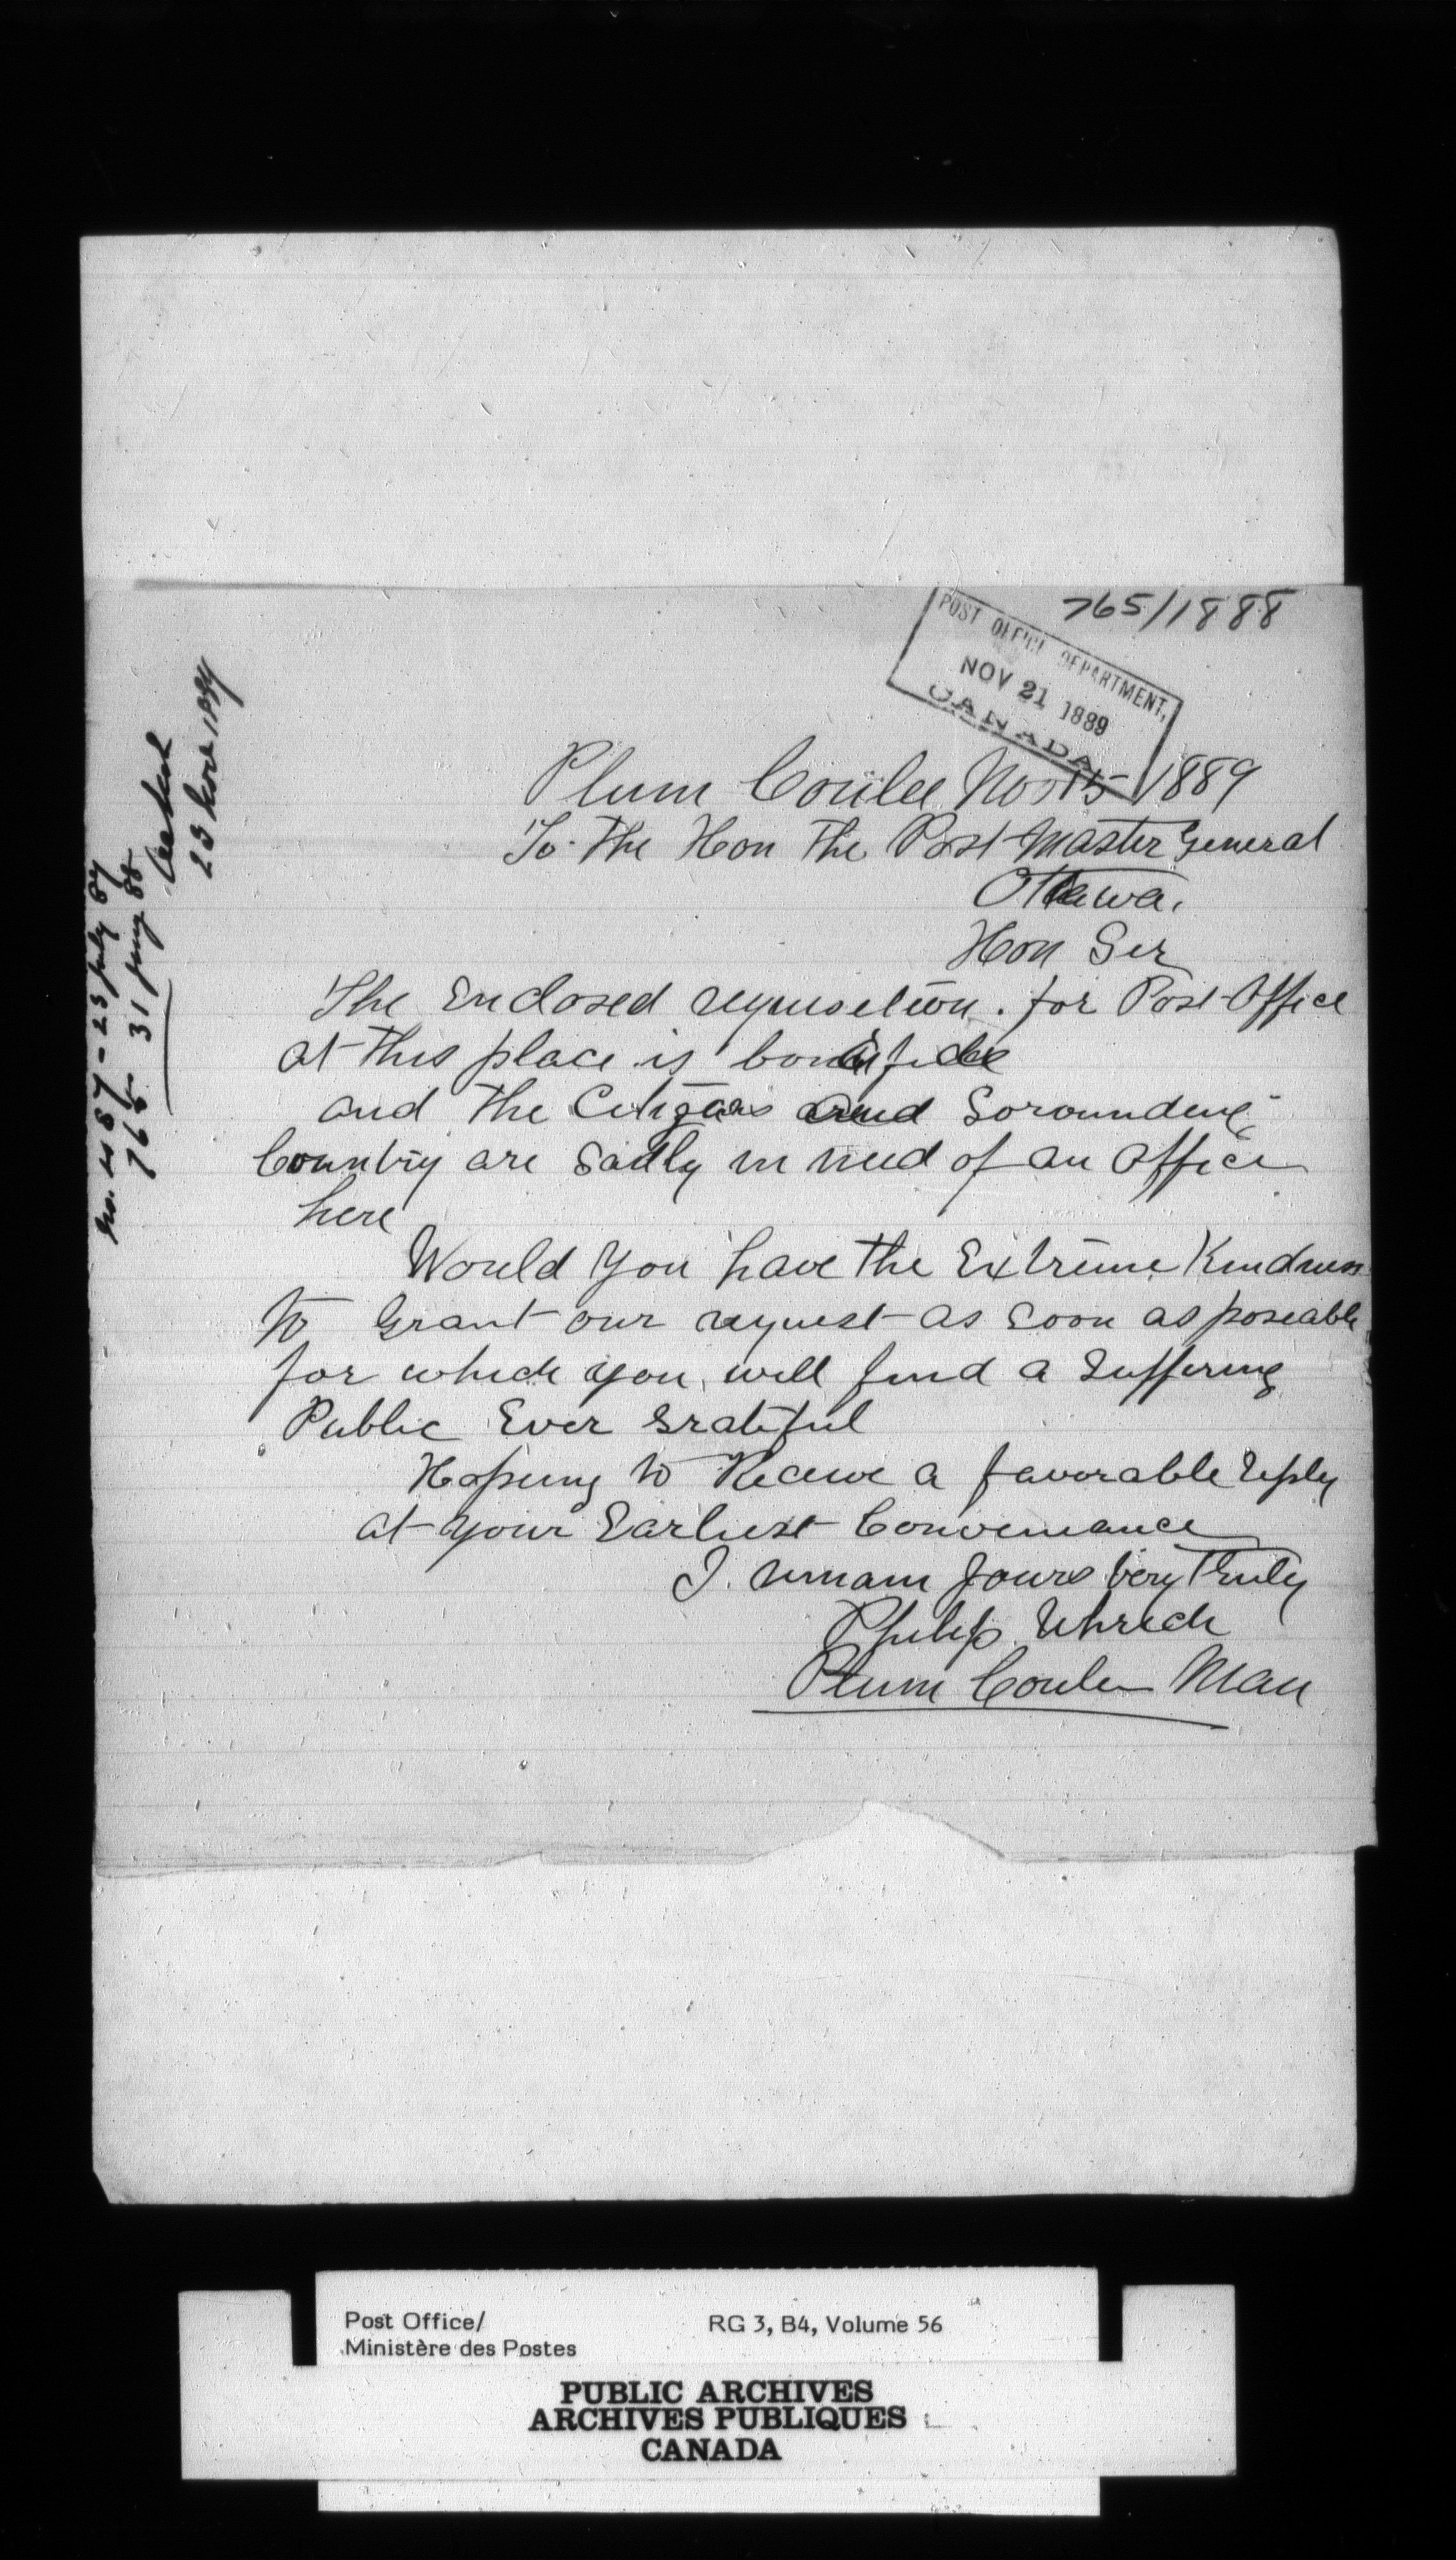 765/1888
POST OFFICE DEPARTMENT,
NOV 21 1889
CANADA
Plum Coulee Nov 15 1889
To The Hon The Post Master General
Ottawa.
Hon Sir
The Enclosed requisition. for Post Office
at this place is bonafide
and The Citizens and Sorounding
Country are Sadly in need of an Office
here
Would You have the Extreme Kindness
to Grant our request as Soon as poseable
for which you will find a Suffering
Public Ever Grateful
Hopeing to Receive a favorable reply
at your Earliest Conveniance
I. remain Yours Very Truly
Philip Uhrich
Plum Coulee Man
No. 487 - 23 July 87
765 31
23 Nov 1889
Post Office/
Ministère des Postes
RG 3, B4, Volume 56
PUBLIC ARCHIVES
ARCHIVES PUBLIQUES
CANADA